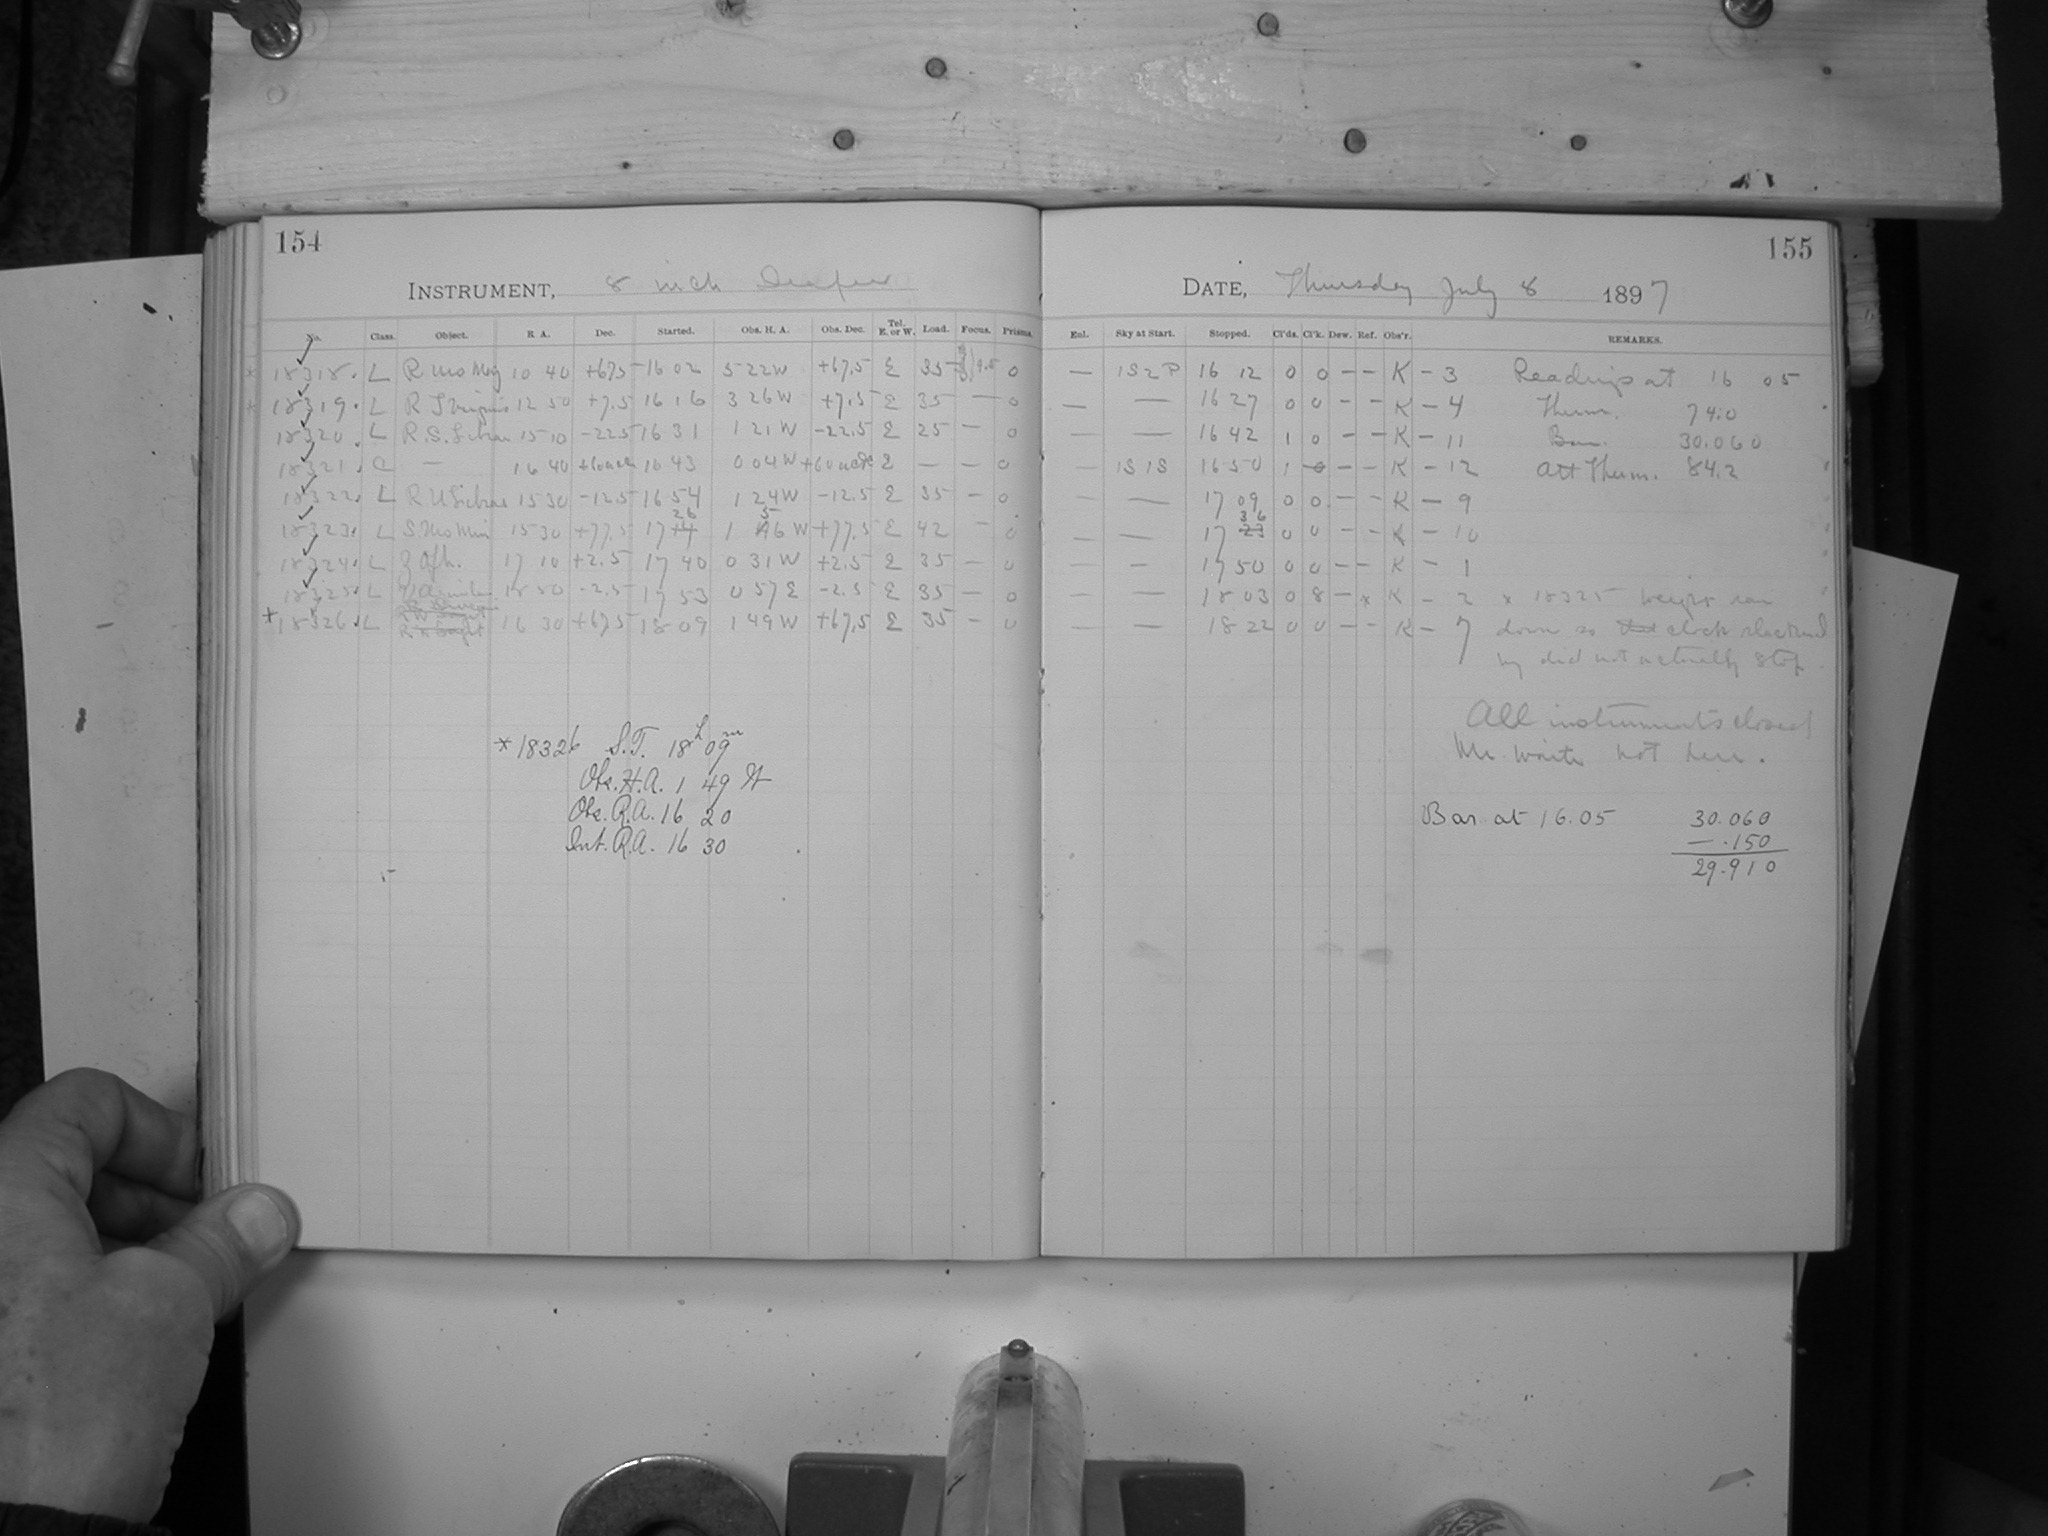 154
INSTRUMENT, 8 inch Draper
No. Class. Object. R. A. Dec. Started. Obs. H. A. Obs. Dec. Tel. E. or W. Load. Focus. Prisms.
* 18318. L R Urs Maj 10 40 +67.5 16 02 5 22 W +67.5 E 35 9.5 0
* 18319. L R Virginis 12 30 +7.5 16 16 3 26 W +7.5 E 35 — 0
18320. L R. S. Librae 15 10 -22.5 16 31 1 21 W -22.5 E 25 — 0
18321. C — 16 40 16 43 0 04 W E — — 0
18322. L R U Librae 15 30 -12.5 16 54 1 24 W -12.5 E 35 — 0
18323. L S. Urs Min 15 30 +77.5 17 26 1 56 W +77.5 E 42 — 0
18324. L Oph. 17 10 +2.5 17 40 0 31 W +2.5 E 35 — 0
18325. L 18 50 -2.5 17 53 0 57 E -2.5 E 35 — 0
* 18326. L 16 30 +67.5 18 09 1 49 W +67.5 E 35 — 0
*18326 S.T. 18h 09m
Obs. H.A. 1 49 W
Obs. R.A. 16 20
Int. R.A. 16 30
155
DATE, Thursday July 8 1897
Enl. Sky at Start. Stopped. Cl'ds. Cl'k. Dew. Ref. Obs'r. REMARKS.
— 1S2P 16 12 0 0 — — K — 3 Readings at 16 05
— — 16 27 0 0 — — K — 4 Therm. 74.0
— — 16 42 1 0 — — K — 11 Bar. 30.060
— 1S1S 16 50 1 0 — — K — 12 Att Therm. 84.2
— — 17 09 0 0 — — K — 9
— — 17 36 0 0 — — K — 10
— — 17 50 0 0 — — K — 1
— — 18 03 0 8 — * K — 2 * 18325 weight ran
— — 18 22 0 0 — — K — 7 down so clock slackened
did not actually stop.
All instruments closed
Mr. Waite not here.
Bar. at 16.05 30.060
— .150
29.910